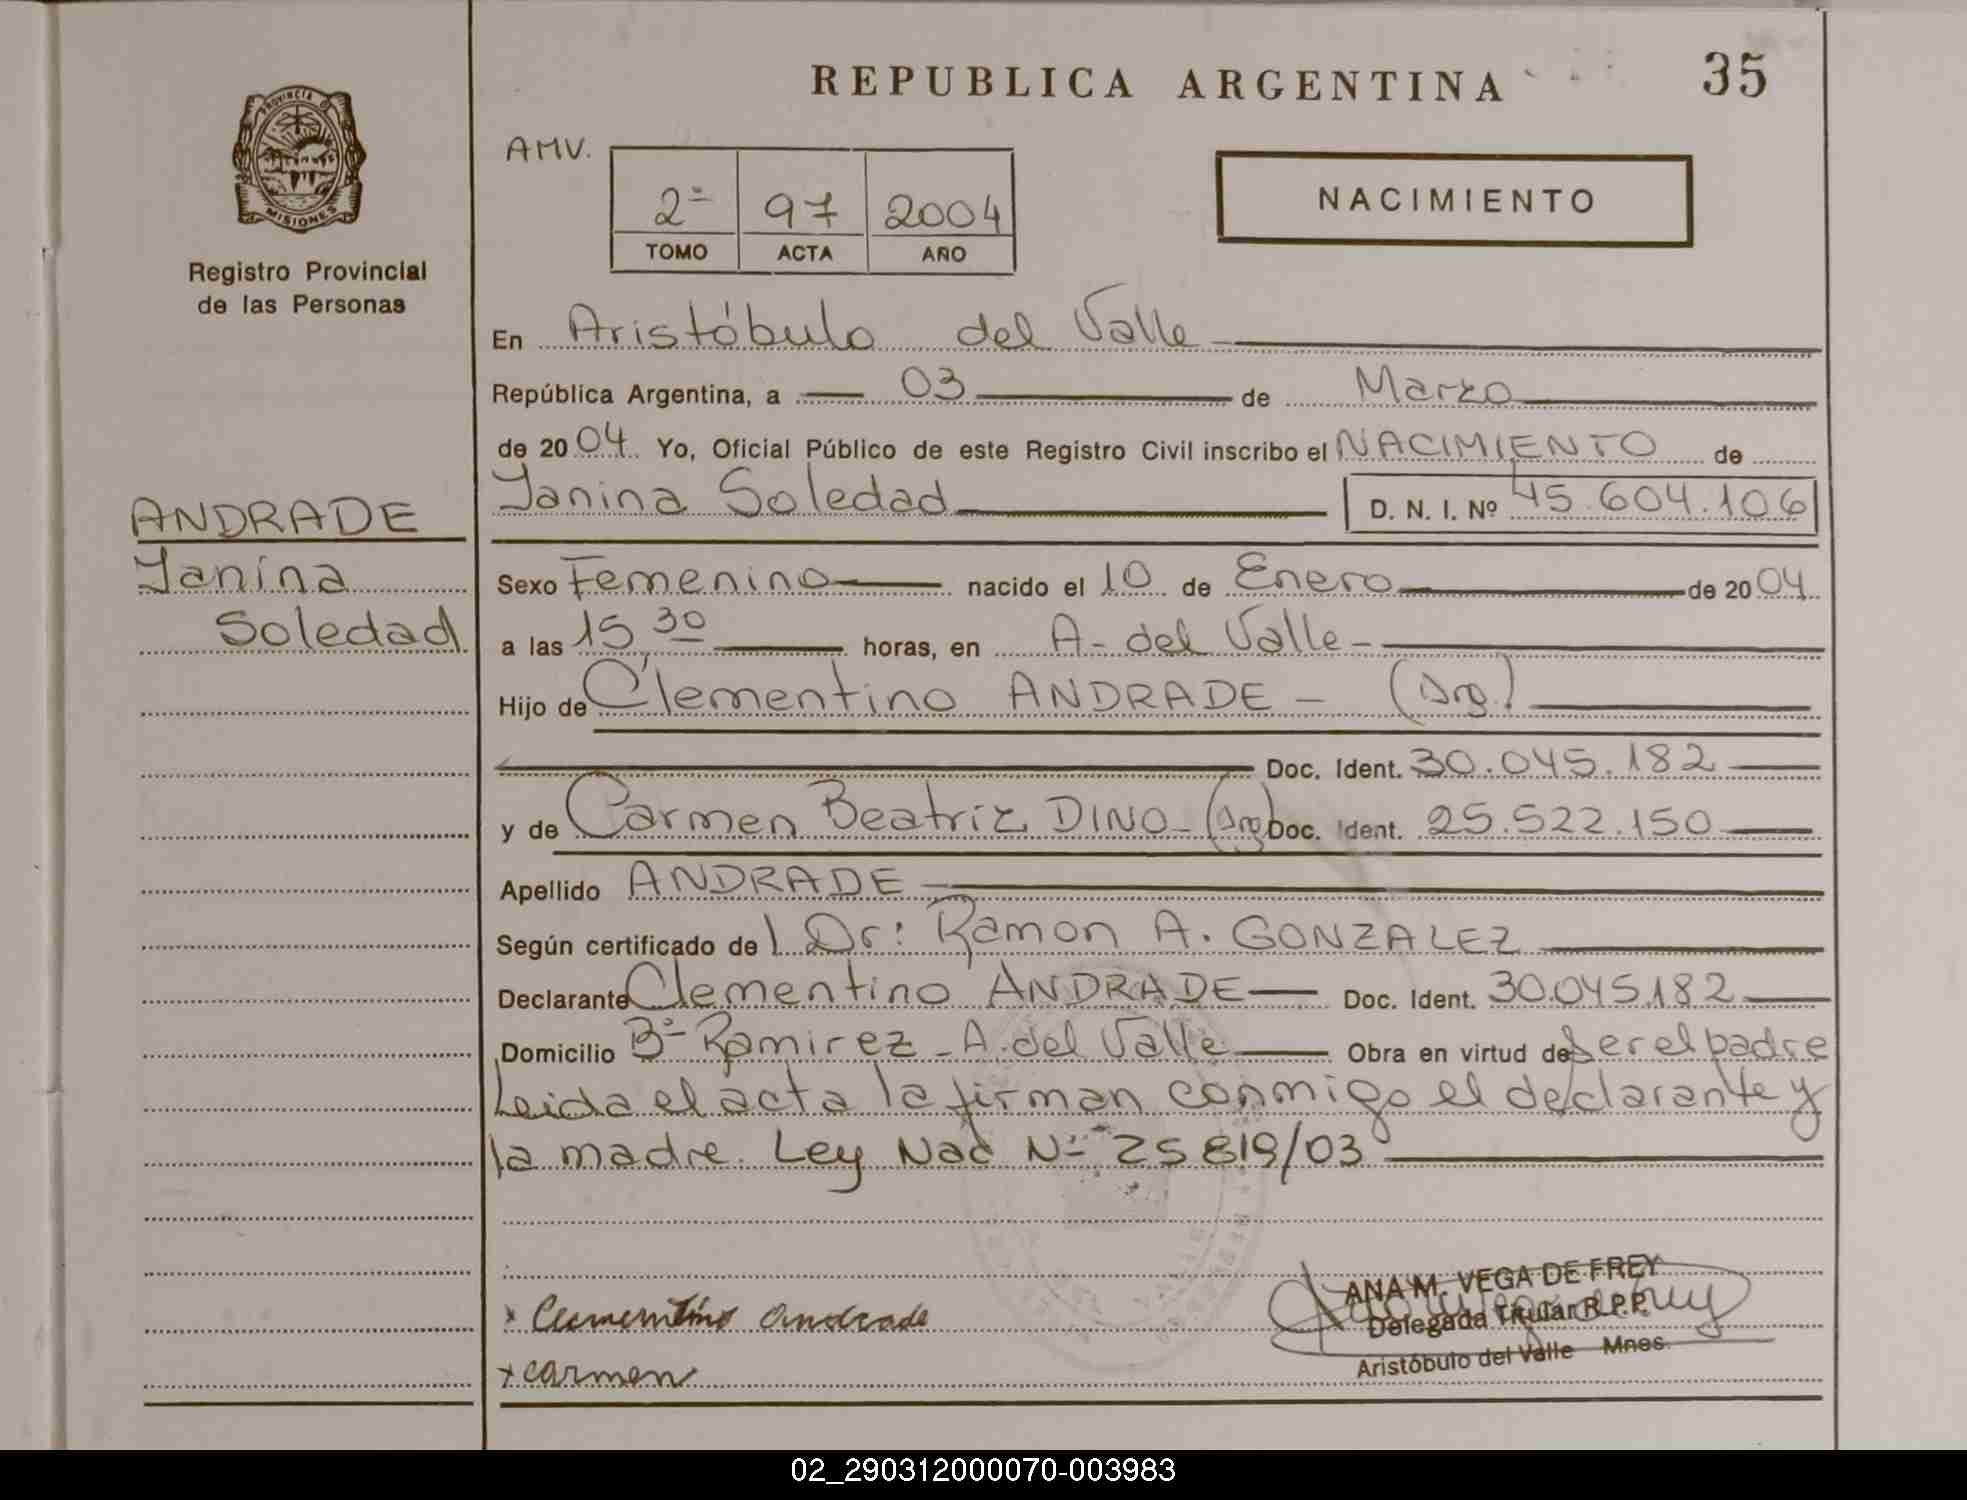 REPUBLICA ARGENTINA
35
PROVINCIA D
MISIONES
Registro Provincial
de las Personas
AMV.
2º 97 2004
TOMO ACTA AÑO
NACIMIENTO
En Aristóbulo del Valle
República Argentina, a 03 de Marzo
de 2004 Yo, Oficial Público de este Registro Civil inscribo el NACIMIENTO de
Yanina Soledad D. N. I. Nº 45.604.106
ANDRADE
Yanina
Soledad
Sexo Femenino nacido el 10 de Enero de 2004
a las 15,30 horas, en A- del Valle-
Hijo de Clementino ANDRADE - (Arg.)
Doc. Ident. 30.045.182
y de Carmen Beatriz DINO - (Arg) Doc. Ident. 25.522.150
Apellido ANDRADE
Según certificado de l Dr: Ramon A. GONZALEZ
Declarante Clementino ANDRADE Doc. Ident. 30.045.182
Domicilio Bº Ramirez - A. del Valle Obra en virtud de Ser el padre
Leida el acta la firman conmigo el declarante y
la madre. Ley Nac Nº 25819/03
x Clementino Andrade
+ carmen
ANA M. VEGA DE FREY
Delegada Titular R.P.P.
Aristóbulo del Valle Mnes.
02_290312000070-003983